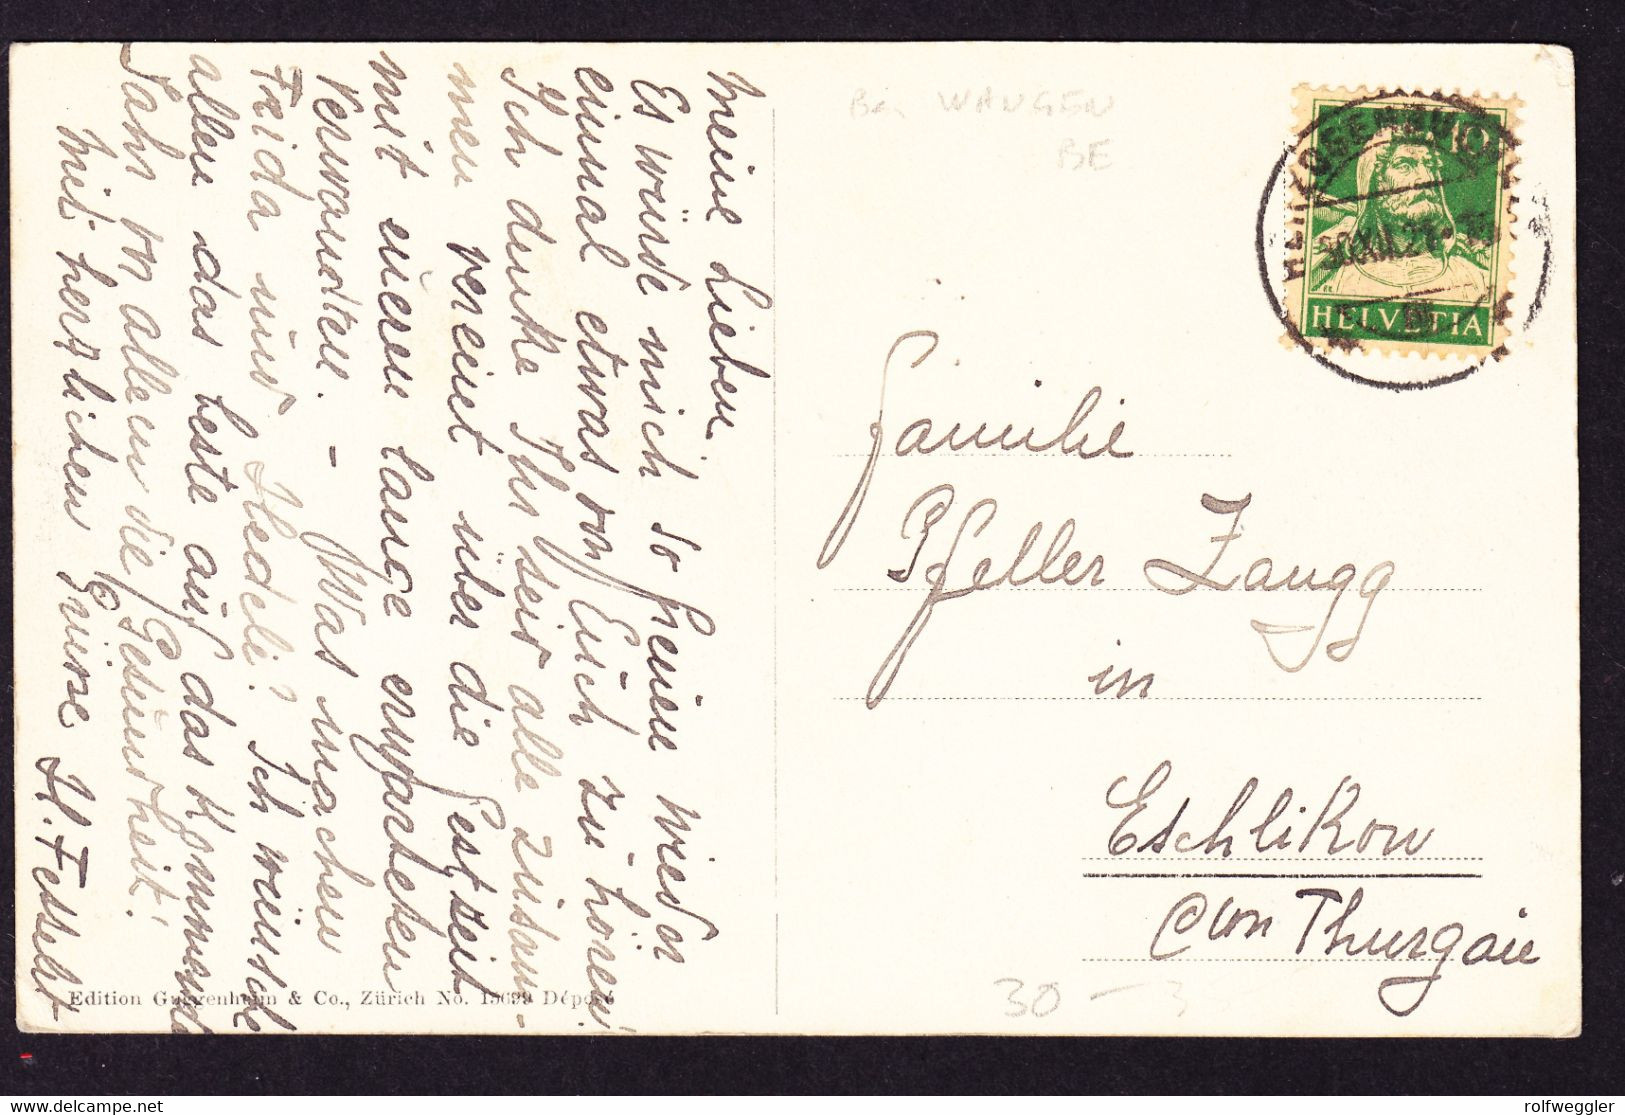 Meine Lieben!
Es würde mich so freuen wieder
einmal etwas von Euch zu hören!
Ich denke Ihr seid alle zusam-
men vereint über die Festzeit
mit eueren lange erwarteten
Verwandten. – Was machen
Frieda und Hedeli? Ich wünsche
allen das beste auf das kommende
Jahr vor allem die Gesundheit!
Mit herzlichen Grüsse
Edition Guggenheim & Co., Zürich No. 15699 Déposé
Bei WANGEN
BE
10
HELVETIA
HERZOGENBUCHSEE
Familie
Pfeller Zaugg
in
Eschlikon
Ctn Thurgau
30 – 3
rolfweggler